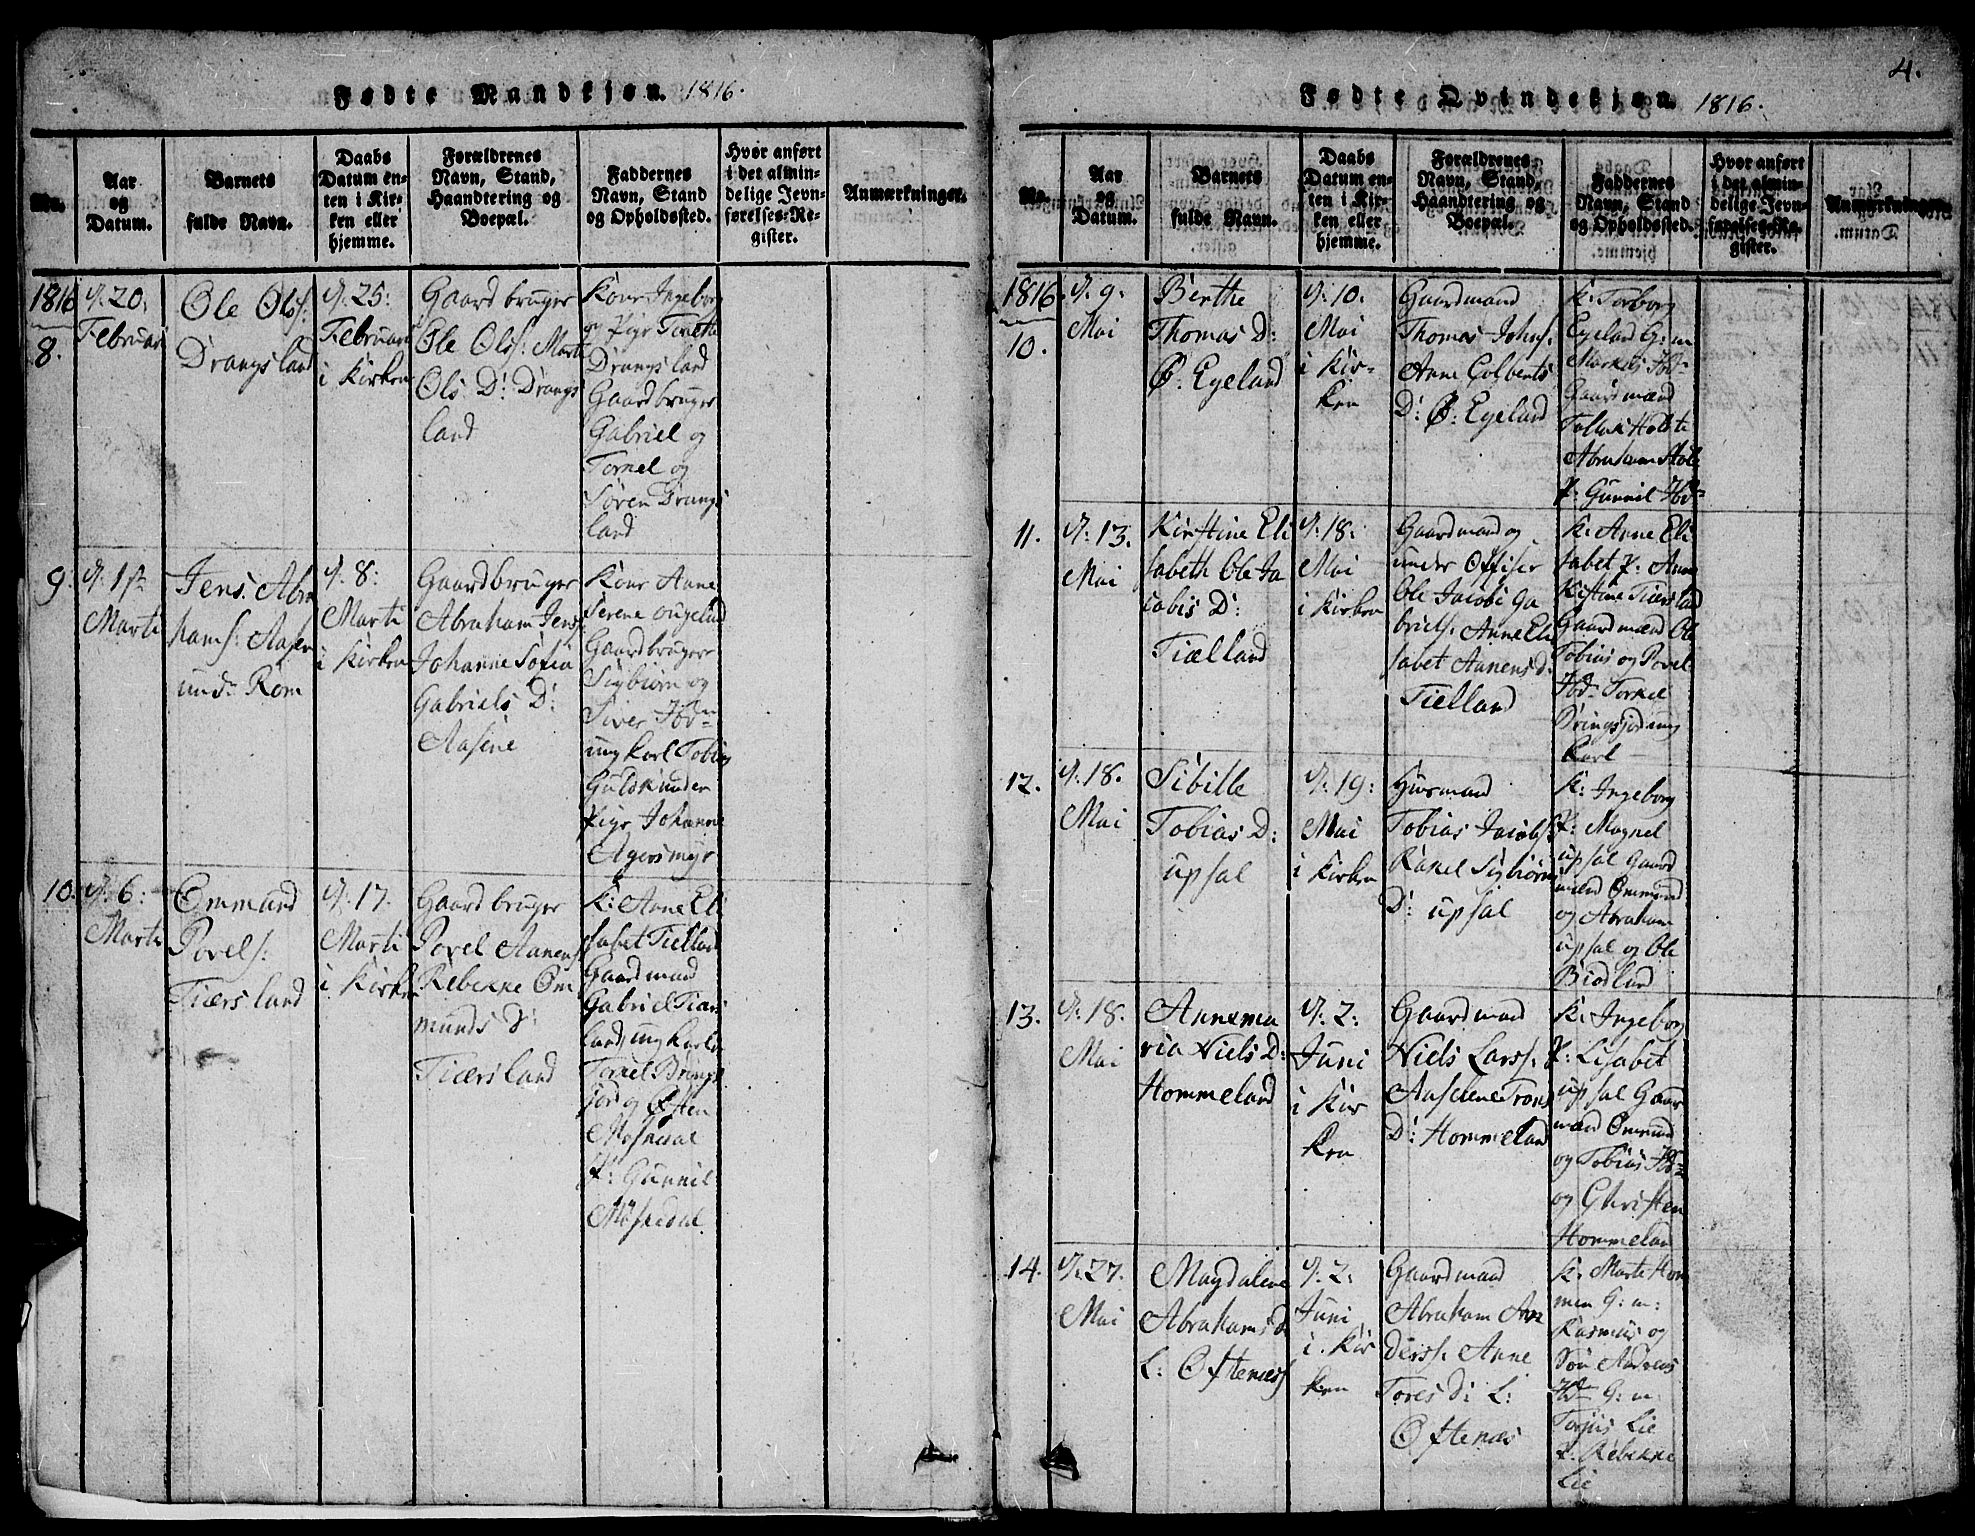 Fødte Mandkjøn. 1816.
No.
Aar
og
Datum.
Barnets
fulde Navn.
Daabs
Datum en-
ten i Kir-
ken eller
hjemme.
Forældrenes
Navn, Stand,
Haandtering og
Boepæl.
Faddernes
Navn, Stand
og Opholdssted.
Hvor anført
i det almin-
delige Jevn-
førelses-Re-
gister.
Anmærkninger.
1816
8.
d. 20:
Februari
Ole Ols:
Drangsland
d: 25:
Februari
i Kirken
Gaardbruger
Ole Ols: Marte
Ols D: Drangs
land
Kone Ingeborg
og Pige
Drangsland
Gaardbruger
Gabriel og
Tornel og
Søren Drangs
land
9.
Marti
Jens. Abra
hams: Aasen
und: Rom
d. 8:
Marti
i Kirken
Gaardbruger
Abraham Jens:
Johanne Sofia
Gabriels D:
Aasene
Kone Anne
Serene
Gaardbrugere
Sigbiørn og
Siver
ungkarl Tobias
Pige Johanne
Agersmyr
10.
d. 6:
Marti
Ommund
Povels:
Tiersland
d. 17.
Marti
i Kirken
Gaardbruger
Povel Aanens:
Rebekke Om
munds D:
Tiersland
K: Anne Eli
sabet Tielland
Gaardmand
Gabriel Tiers
land, ungkarle
Torkel Brings
jord og Østen
Møskedal
P: Gunnil
Møskedal
4.
Fødte Qvindekjøn. 1816.
No.
Aar
og
Datum.
Barnets
fulde Navn.
Daabs
Datum en-
ten i Kir-
ken eller
hjemme.
Forældrenes
Navn, Stand,
Haandtering og
Boepæl.
Faddernes
Navn, Stand
og Opholdssted.
Hvor anført
i det almin-
delige Jevn-
førelses-Re-
gister.
Anmærkninger.
1816
10.
d. 9:
Mai
Berthe
Thomas D:
Ø: Egeland
d: 10.
Mai
i Kir-
ken
Gaardmand
Thomas Johns:
Anne Colbents
D: Ø: Egeland
K: Torborg
Egeland G: m
Gaardmænd
Abraham
P: Gunnil
11.
d. 13.
Mai
Kirstine Eli
sabeth Ole Ja
cobis D:
Tielland
d: 18:
Mai
i Kirken
Gaardmand og
under Offiser
Ole Jacobi Ga
briels: Anne Eli
sabet Aanens D:
Tielland
K: Anne Eli
sabet P: Anne
Kistine Tiersland
Gaardmænd Ole
Tobias og Povel
Torkel
Bringsjord ung
Karl
12.
d. 18.
Mai
Sibille
Tobias D:
upsal
d. 19:
Mai
i Kirken
Huusmand
Tobias Jacobs:
Rakel Sigbiørns
D: upsal
K: Ingeborg
P: Magnel
upsal Gaard
mænd Ommund
og Abraham
upsal og Ole
Biodland
13.
d. 18.
Mai
Annema
ria Niels D:
Hommeland
d. 2:
Juni
i Kir
ken
Gaardmand
Niels Larss:
Aaselene Trons
D: Hommeland
K: Ingeborg
P: Lisabet
upsal Gaar
mænd Ommund
og Tobias
og Christen
Hommeland
14.
d. 27.
Mai
Magdalene
Abrahams D
L: Oftenæs
d. 2:
Juni
i. Kir
ken
Gaardmand
Abraham An
derss: Anne
Tores D: L:
Oftenæs
K: Marte Hom
men G: m:
Rasmus og
Søn Andreas
G: m.
Torjus Lie
P. Rebekke
Lie